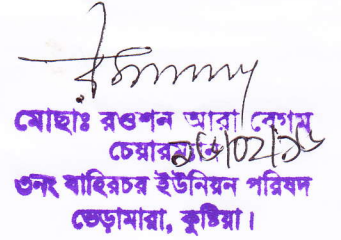 মোছাঃ রওশন আরা বেগম
চেয়ারম্যান
৩নং বাহিরচর ইউনিয়ন পরিষদ
ভেড়ামারা, কুষ্টিয়া।